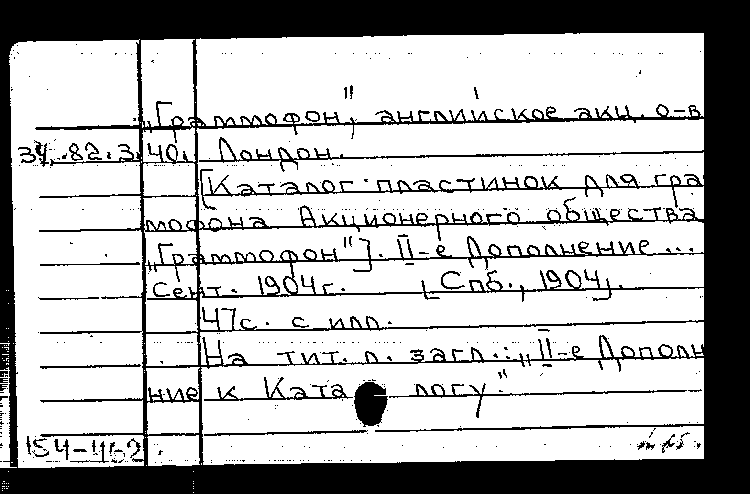 „Граммофон", английское акц. о-в
34.82.3.40. Лондон.
[Каталог пластинок для гра
мофона Акционерного общества
„Граммофон"]. II-е Дополнение...
Сент. 1904г. [Спб., 1904].
47с. с илл.
На тит. л. загл.: „II-е Дополн
ние к Каталогу."
154-462.